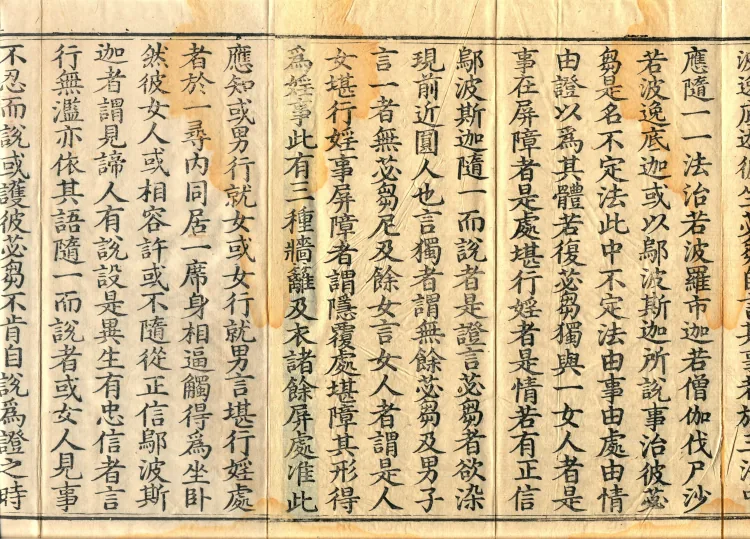 應隨一一法治若波羅市迦若僧伽伐尸沙
若波逸底迦或以鄔波斯迦所說事治彼苾
芻是名不定法此中不定法由事由處由情
由證以爲其體若復苾芻獨與一女人者是
事在屏障者是處堪行婬者是情若有正信
鄔波斯迦隨一而說者是證言苾芻者欲染
現前近圓人也言獨者謂無餘苾芻及男子
言一者無苾芻尼及餘女言女人者謂是人
女堪行婬事屏障者謂隱覆處堪障其形得
爲婬事此有三種牆籬及衣諸餘屏處准此
應知或男行就女或女行就男言堪行婬處
者於一尋內同居一席身相逼觸得爲坐卧
然彼女人或相容許或不隨從正信鄔波斯
迦者謂見諦人有說設是異生有忠信者言
行無濫亦依其語隨一而說者或女人見事
不忍而說或護彼苾芻不肯自說爲證之時